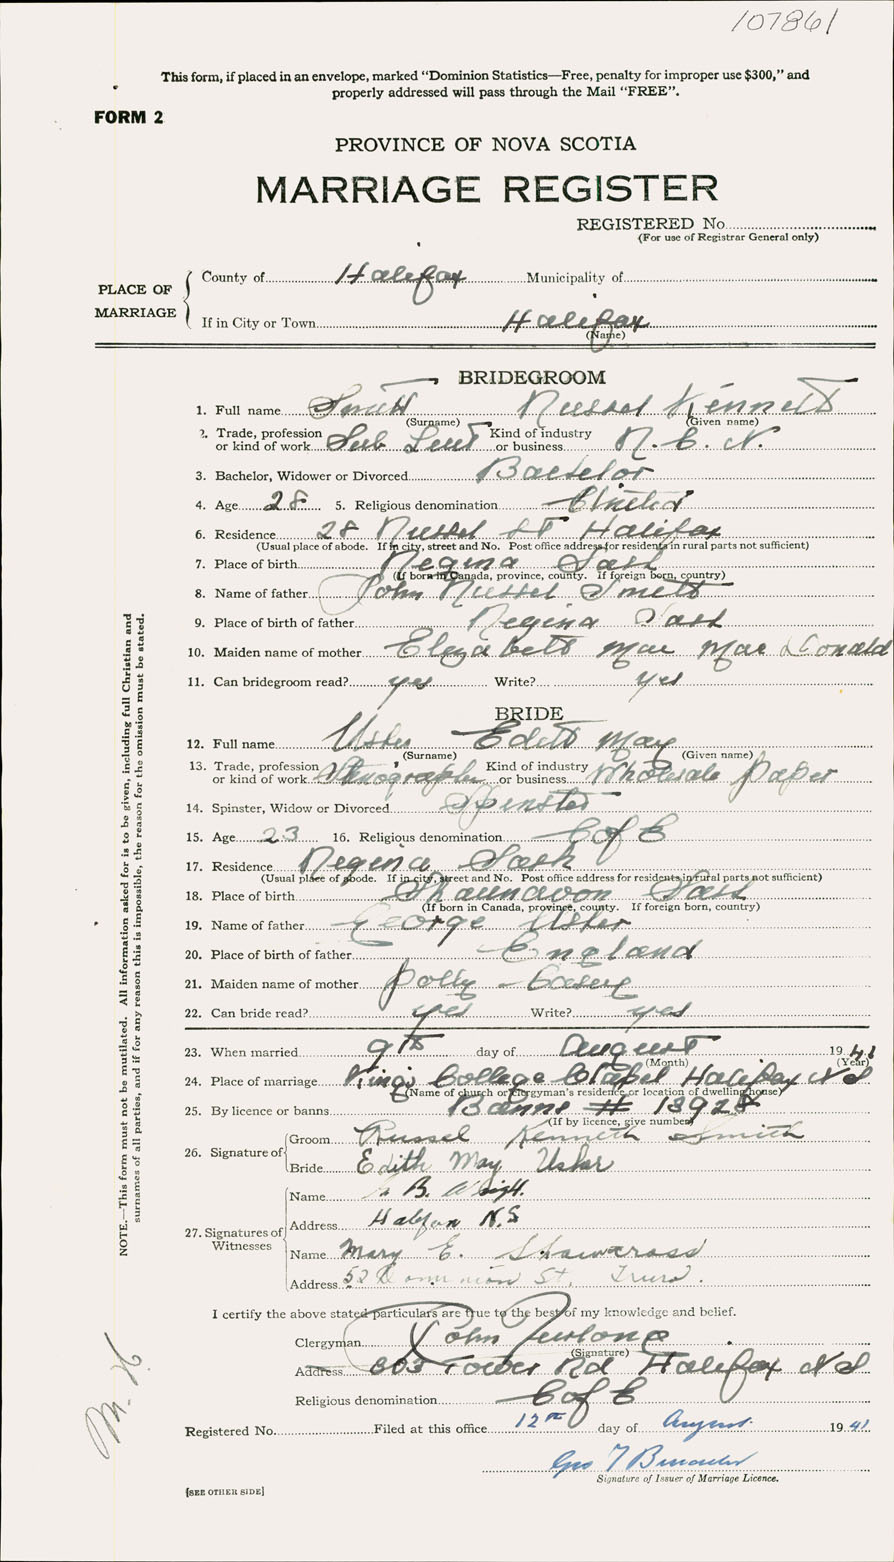 107861
This form, if placed in an envelope, marked "Dominion Statistics—Free, penalty for improper use $300," and
properly addressed will pass through the Mail "FREE".
FORM 2
PROVINCE OF NOVA SCOTIA
MARRIAGE REGISTER
REGISTERED No.
(For use of Registrar General only)
PLACE OF MARRIAGE
County of Halifax Municipality of
If in City or Town Halifax
(Name)
BRIDEGROOM
1. Full name Smith Russel Kenneth
(Surname) (Given name)
2. Trade, profession or kind of work Sub Lieut Kind of industry or business R. C. N.
3. Bachelor, Widower or Divorced Bachelor
4. Age 28 5. Religious denomination United
6. Residence 28 Russel St Halifax
(Usual place of abode. If in city, street and No. Post office address for residents in rural parts not sufficient)
7. Place of birth Regina Sask
(If born in Canada, province, county. If foreign born, country)
8. Name of father John Russel Smith
9. Place of birth of father Regina Sask
10. Maiden name of mother Elizabeth Mae MacDonald
11. Can bridegroom read? yes Write? yes
BRIDE
12. Full name Usher Edith May
(Surname) (Given name)
13. Trade, profession or kind of work Stenographer Kind of industry or business Wholesale Paper
14. Spinster, Widow or Divorced Spinster
15. Age 23 16. Religious denomination C of E
17. Residence Regina Sask
(Usual place of abode. If in city, street and No. Post office address for residents in rural parts not sufficient)
18. Place of birth Shaunavon Sask
(If born in Canada, province, county. If foreign born, country)
19. Name of father George Usher
20. Place of birth of father England
21. Maiden name of mother Polly Casey
22. Can bride read? yes Write? yes
23. When married 9th day of August 1941
(Month) (Year)
24. Place of marriage King's College Chapel Halifax N S
(Name of church or clergyman's residence or location of dwelling house)
25. By licence or banns Banns # 13928
(If by licence, give number)
26. Signature of
Groom Russel Kenneth Smith
Bride Edith May Usher
27. Signatures of Witnesses
Name B. Wright
Address Halifax N.S
Name Mary E. Shawcross
Address 52 Dominion St. Truro.
I certify the above stated particulars are true to the best of my knowledge and belief.
Clergyman John Furlong
(Signature)
Address 803 Tower Rd Halifax N S
Religious denomination C of E
Registered No. Filed at this office 12th day of August 1941
Geo T
Signature of Issuer of Marriage Licence.
[SEE OTHER SIDE]
NOTE.—This form must not be mutilated. All information asked for is to be given, including full Christian and
surnames of all parties, and if for any reason this is impossible, the reason for the omission must be stated.
M. H